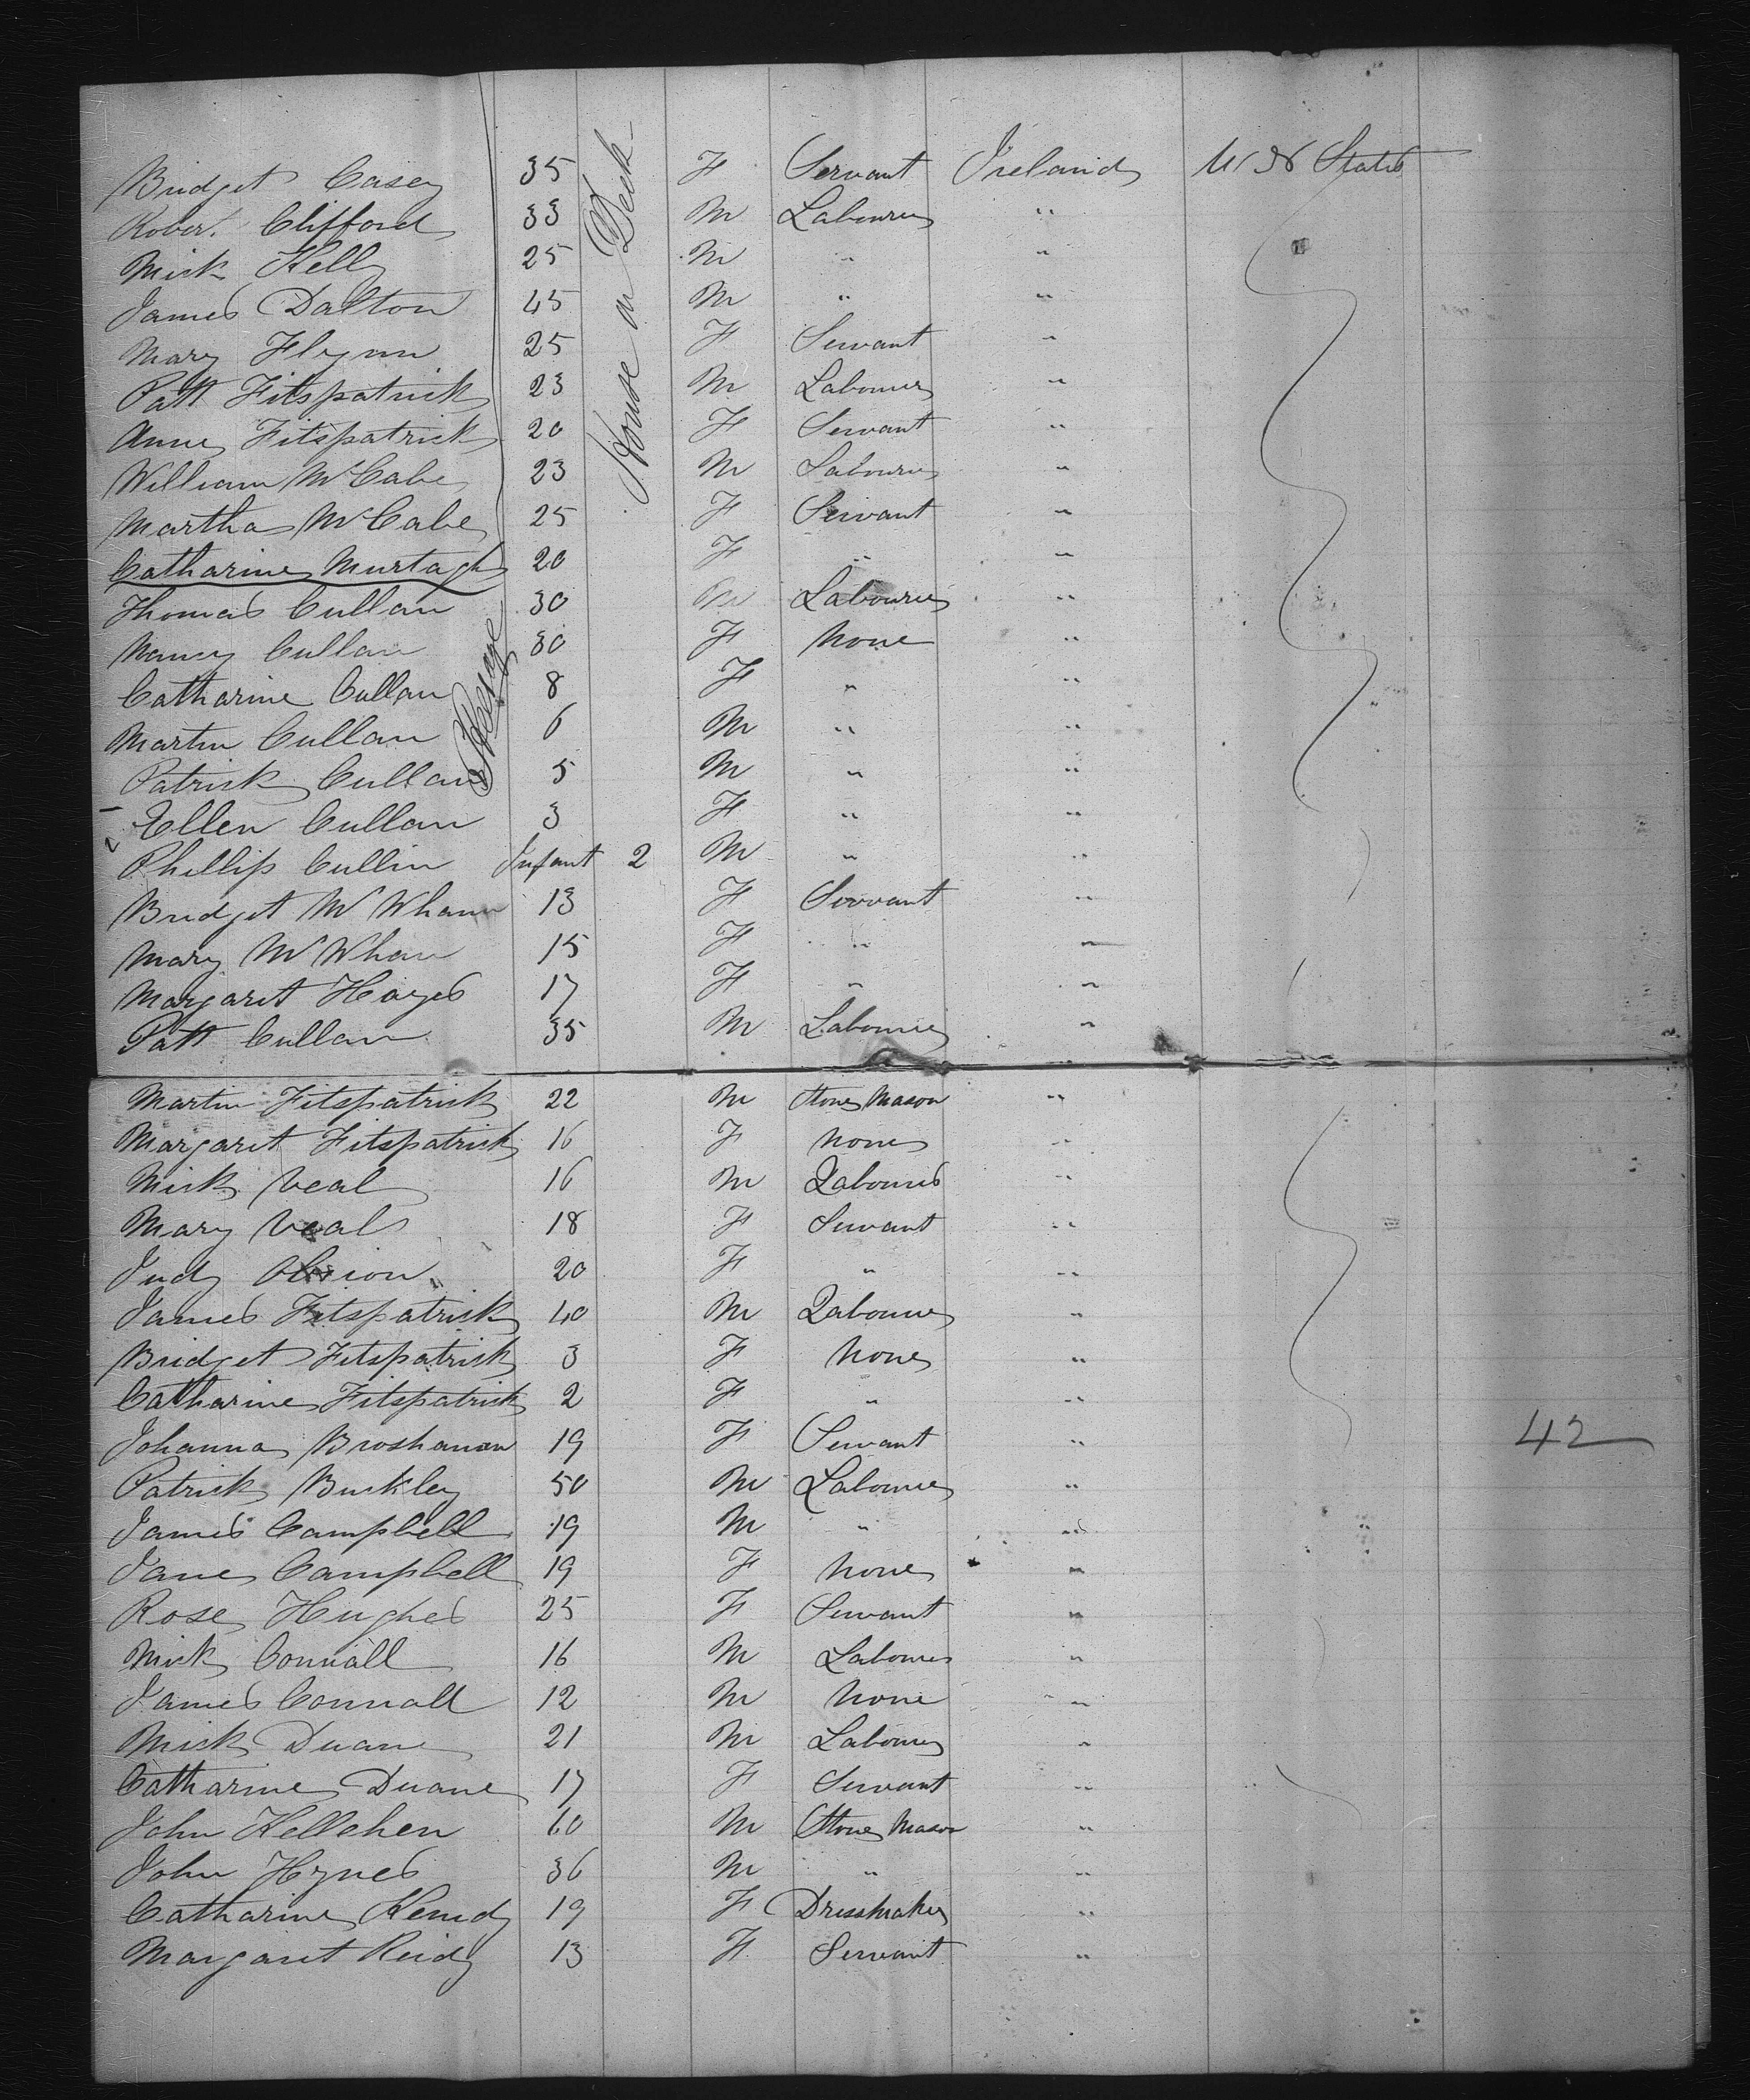 Bridget Casey 35 F Servant Ireland U States
Robert Clifford 33 M Labourer "
Mick Kelly 25 M " "
James Dalton 45 M " "
Mary Flynn 25 F Servant "
Patt Fitspatrick 23 M Labourer "
Anne Fitspatrick 20 F Servant "
William McCabe 23 M Labourer "
Martha McCabe 25 F Servant "
Catharine Murtagh 20 F " "
Thomas Cullan 30 M Labourer "
Nancy Cullan 30 F None "
Catharine Cullan 8 F " "
Martin Cullan 6 M " "
Patrick Cullan 5 M " "
Ellen Cullan 3 F " "
Phillip Cullin Infant 2 M " "
Bridget McWhann 13 F Servant "
Mary McWhan 15 F " "
Margaret Hayes 17 F " "
Patt Cullan 35 M Labourer "
Steerage
House on Deck
Martin Fitspatrick 22 M Stone Mason "
Margaret Fitspatrick 16 F None "
Mick Veal 16 M Labourer "
Mary Veal 18 F Servant "
Judy 20 F " "
James Fitspatrick 40 M Labourer "
Bridget Fitspatrick 3 F None "
Catharine Fitspatrick 2 F " "
Johanna Broshanan 19 F Servant " 42
Patrick Buckley 50 M Labourer "
James Campbell 19 M " "
Jane Campbell 19 F None "
Rose Hughes 25 F Servant "
Mick Connall 16 M Labourer "
James Connall 12 M None "
Mick Duane 21 M Labourer "
Catharine Duane 17 F Servant "
John Kellehen 60 M Stone Mason "
John Hynes 36 M " "
Catharine Kennedy 19 F Dressmaker "
Margaret Reidy 13 F Servant "